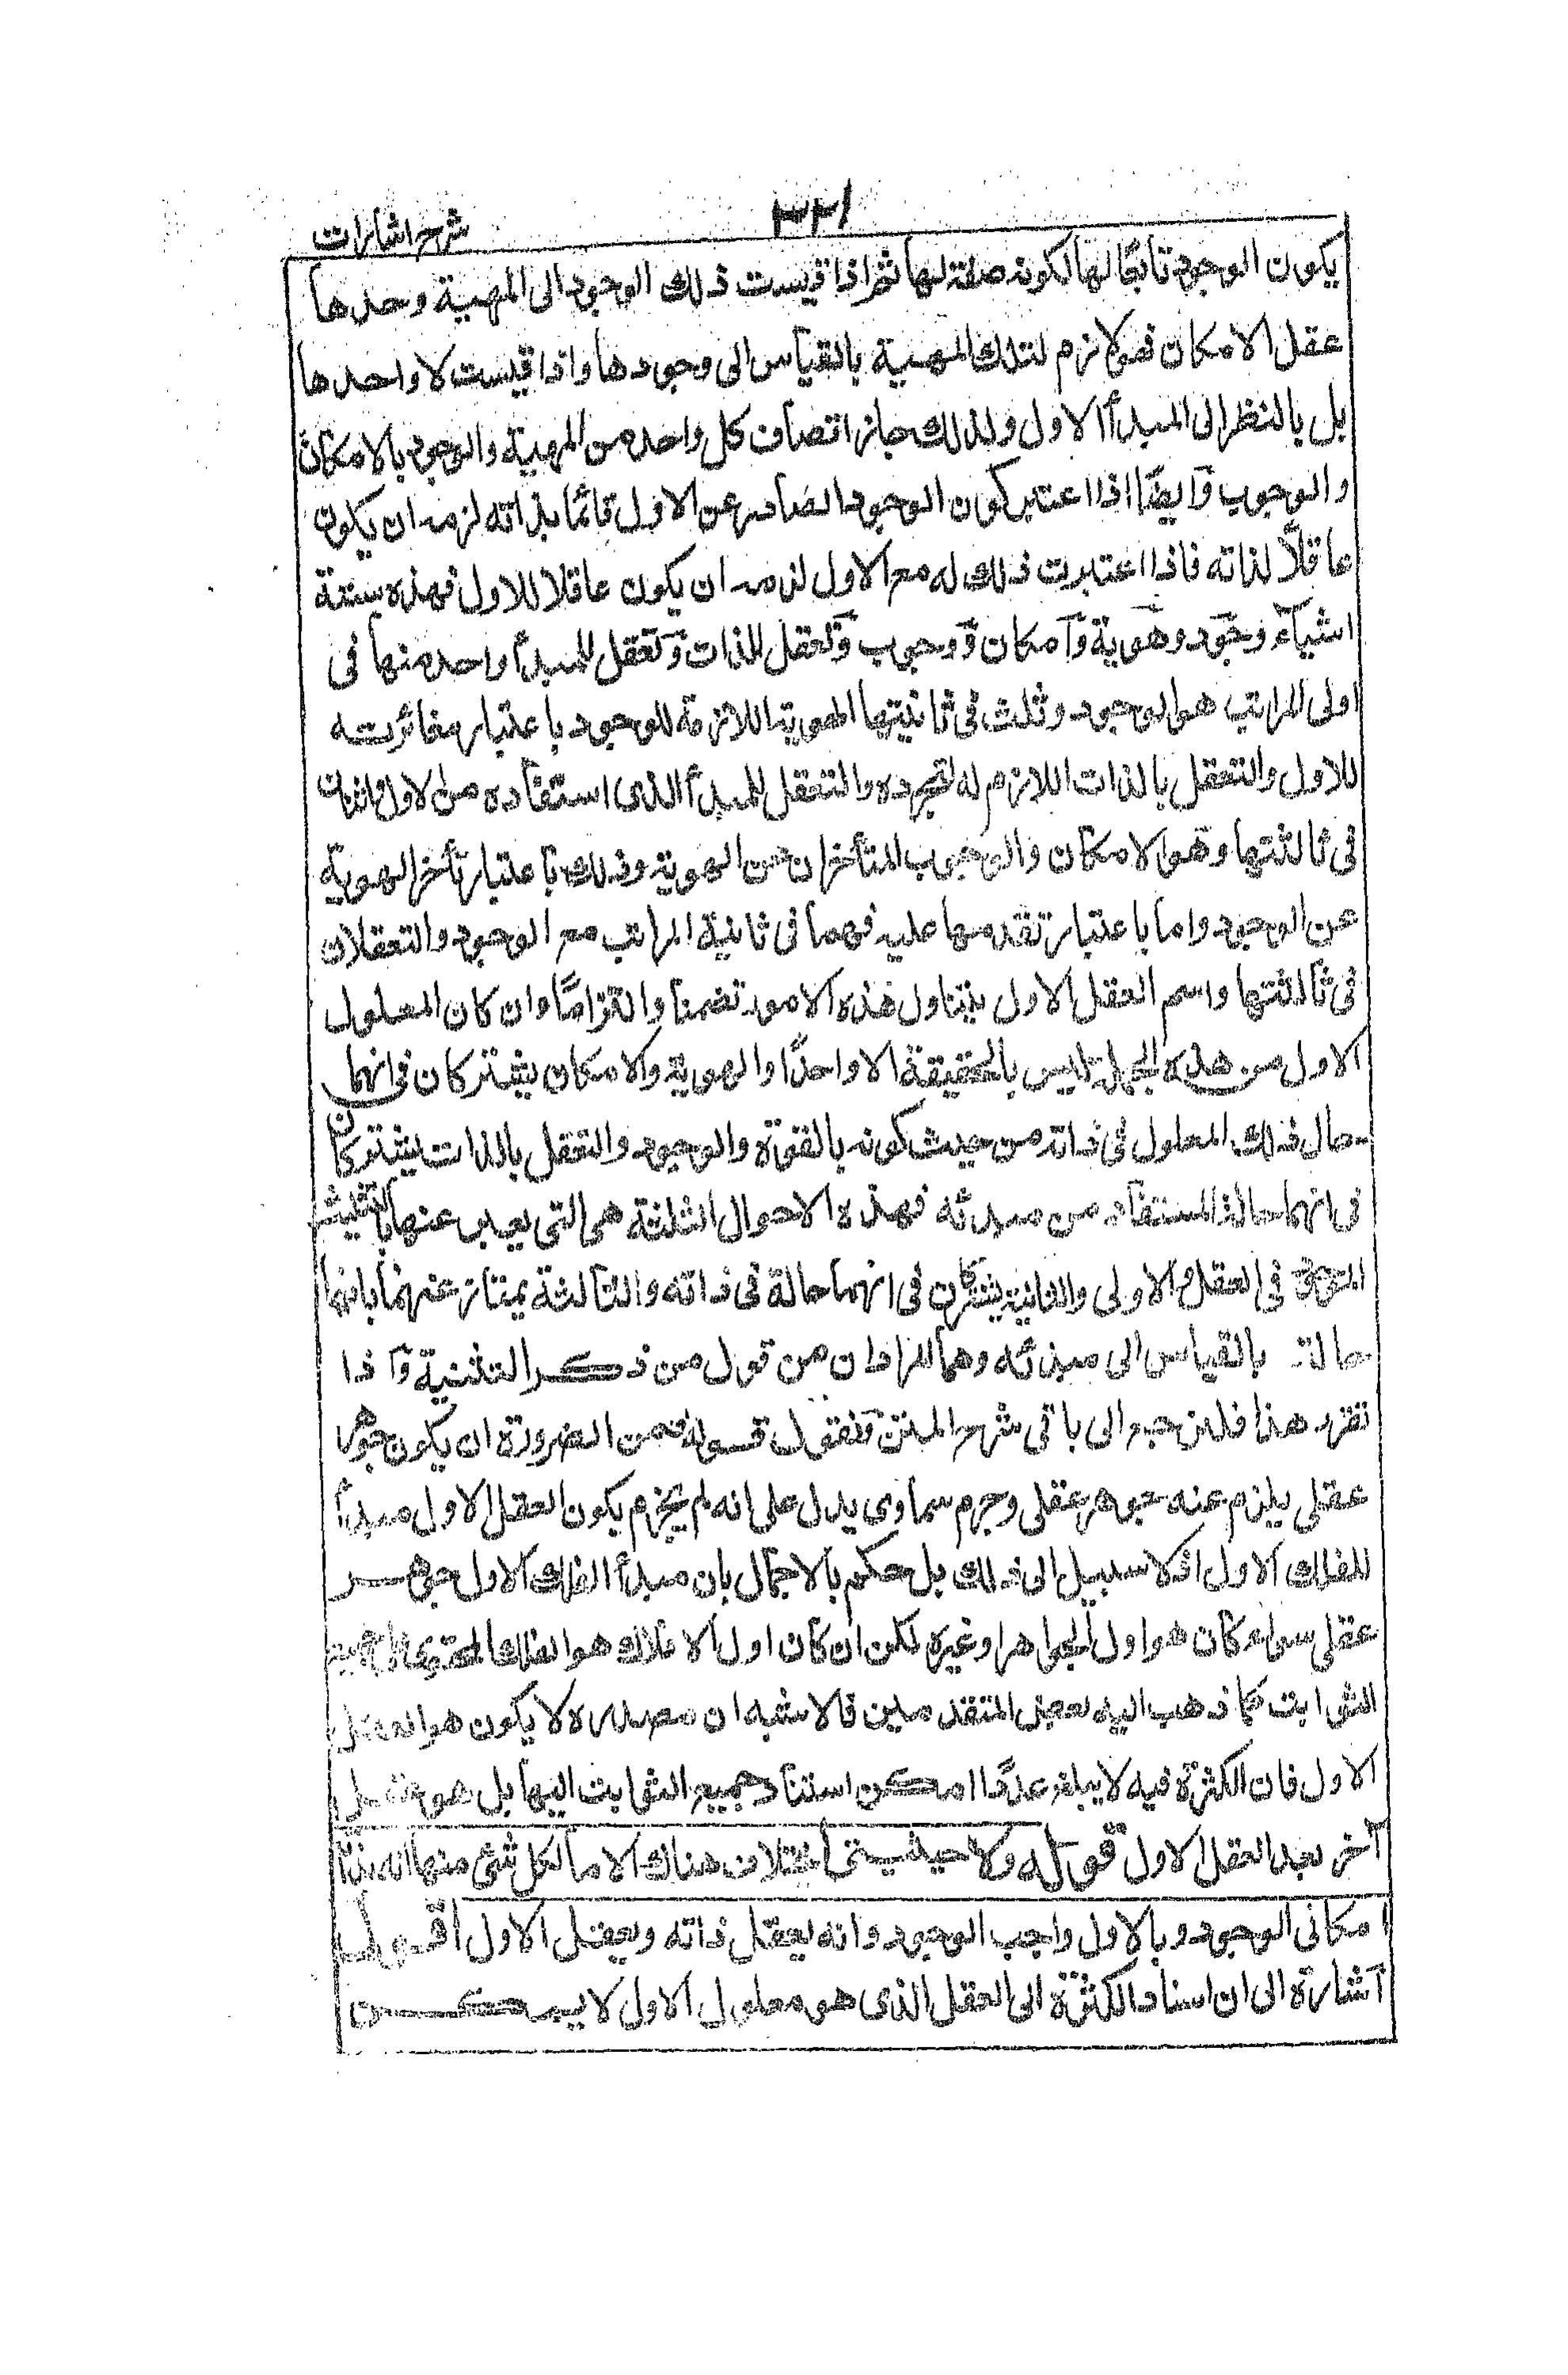 شرح اشارات
٣٢١
يكون الوجود تابعًا لها لكونه صفة لها ثم اذا قيست ذلك الوجود الى المهية وحدها
عقل الامكان فهو لازم لتلك المهية بالقياس الى وجودها واذا قيست لا واحدها
بل بالنظر الى المبدأ الاول ولذلك جاز اتصاف كل واحد من المهية والوجود بالامكان
والوجوب وايضًا اذا اعتبر كون الوجود الصادر عن الاول قائمًا بذاته لزمه ان يكون
عاقلًا لذاته فاذا اعتبرت ذلك له مع الاول لزمه ان يكون عاقلا للاول فهذه ستة
اشياء وجود وهوية وامكان ووجوب وتعقل للذات وتعقل للمبدأ واحد منها فى
اولى المراتب هو الوجود وثلث فى ثانيتها الهوية اللازمة للوجود باعتبار مغائرته
للاول والتعقل بالذات اللازم له لتجرده والتعقل للمبدأ الذى استفاده من الاول واثنان
فى ثالثتها وهو الامكان والوجوب المتأخران عن الهوية وذلك باعتبار تأخر الهوية
عن الوجود واما باعتبار تقدمها عليه فهما فى ثانية المراتب مع الوجود والتعقلان
فى ثالثتها واسم العقل الاول يتناول هذه الامور تضمنا والتزامًا وان كان المعلول
الاول من هذه الجملة ليس بالحقيقة الا واحدًا والهوية والامكان يشتركان فى انهما
حال ذلك المعلول فى ذاته من حيث كونه بالقوة والوجود والتعقل بالذات يشتركان
فى انهما حالة المستفاد من مبدئه فهذه الاحوال الثلثة هى التى يعبر عنها بالتثليث
الموجود فى العقل الاولى والثانية يشتركان فى انهما حالة فى ذاته والثالثة يمتاز عنهما بانها
حالة بالقياس الى مبدئه وهما المرادان من قول من ذكر التثنية واذا
تقرر هذا فلنرجع الى باقى شرح المتن فنقول قوله فمن الضرورة ان يكون جوهر
عقلى يلزم عنه جوهر عقلى وجرم سماوى يدل على انه لم يجزم بكون العقل الاول مبدأ
للفلك الاول اذ لا سبيل الى ذلك بل حكم بالاجمال بان مبدأ الفلك الاول جوهر
عقلى سواء كان هو اول الجواهر او غيره لكن ان كان اول الافلاك هو الفلك المحتوى على جميع
الثوابت كما ذهب اليه بعض المتقدمين فالاشبه ان مصدره لا يكون هو العقل
الاول فان الكثرة فيه لا يبلغ عددًا امكن استناد جميع الثوابت اليها بل هو عقل
آخر بعد العقل الاول قوله ولا حيثيتى اختلاف هناك الا ما لكل شئ منها انه بذاته
امكانى الوجود وبالاول واجب الوجود وانه يعقل ذاته ويعقل الاول اقول
اشارة الى ان اسناد الكثرة الى العقل الذى هو معلول الاول لا يمكن